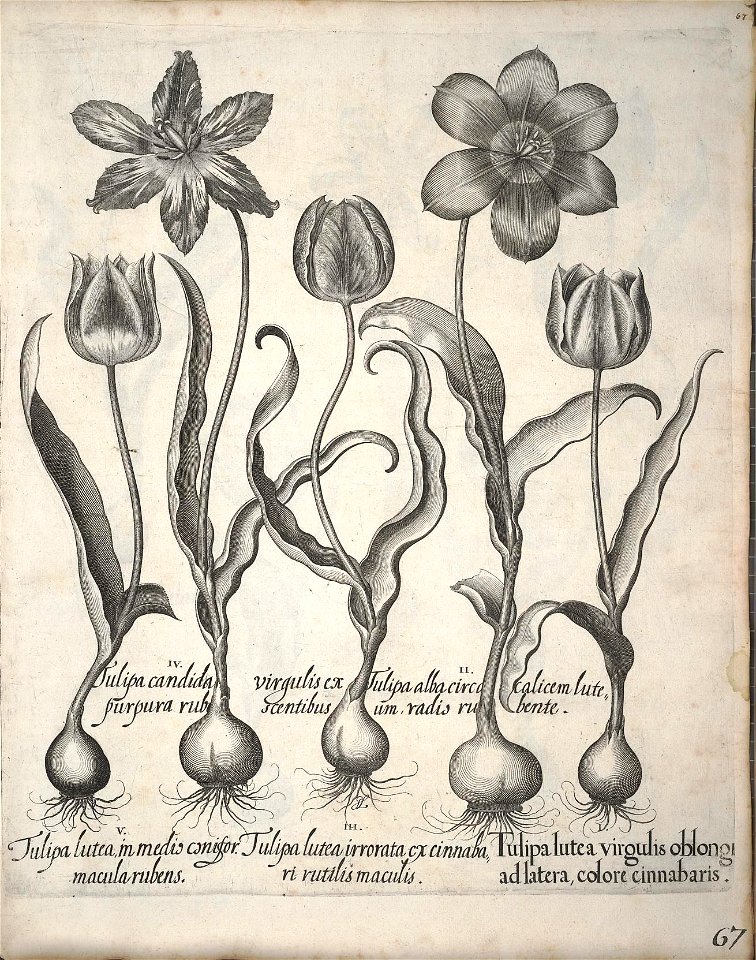 67
IV.
Tulipa candida virgulis ex
purpura rubescentibus
II.
Tulipa alba circa calicem lute,
um, radio rubente.
V.
Tulipa lutea, in medio
macula rubens.
III.
Tulipa lutea irrorata ex cinnaba,
ri rutilis maculis.
I.
Tulipa lutea virgulis oblongi
ad latera, colore cinnabaris.
67